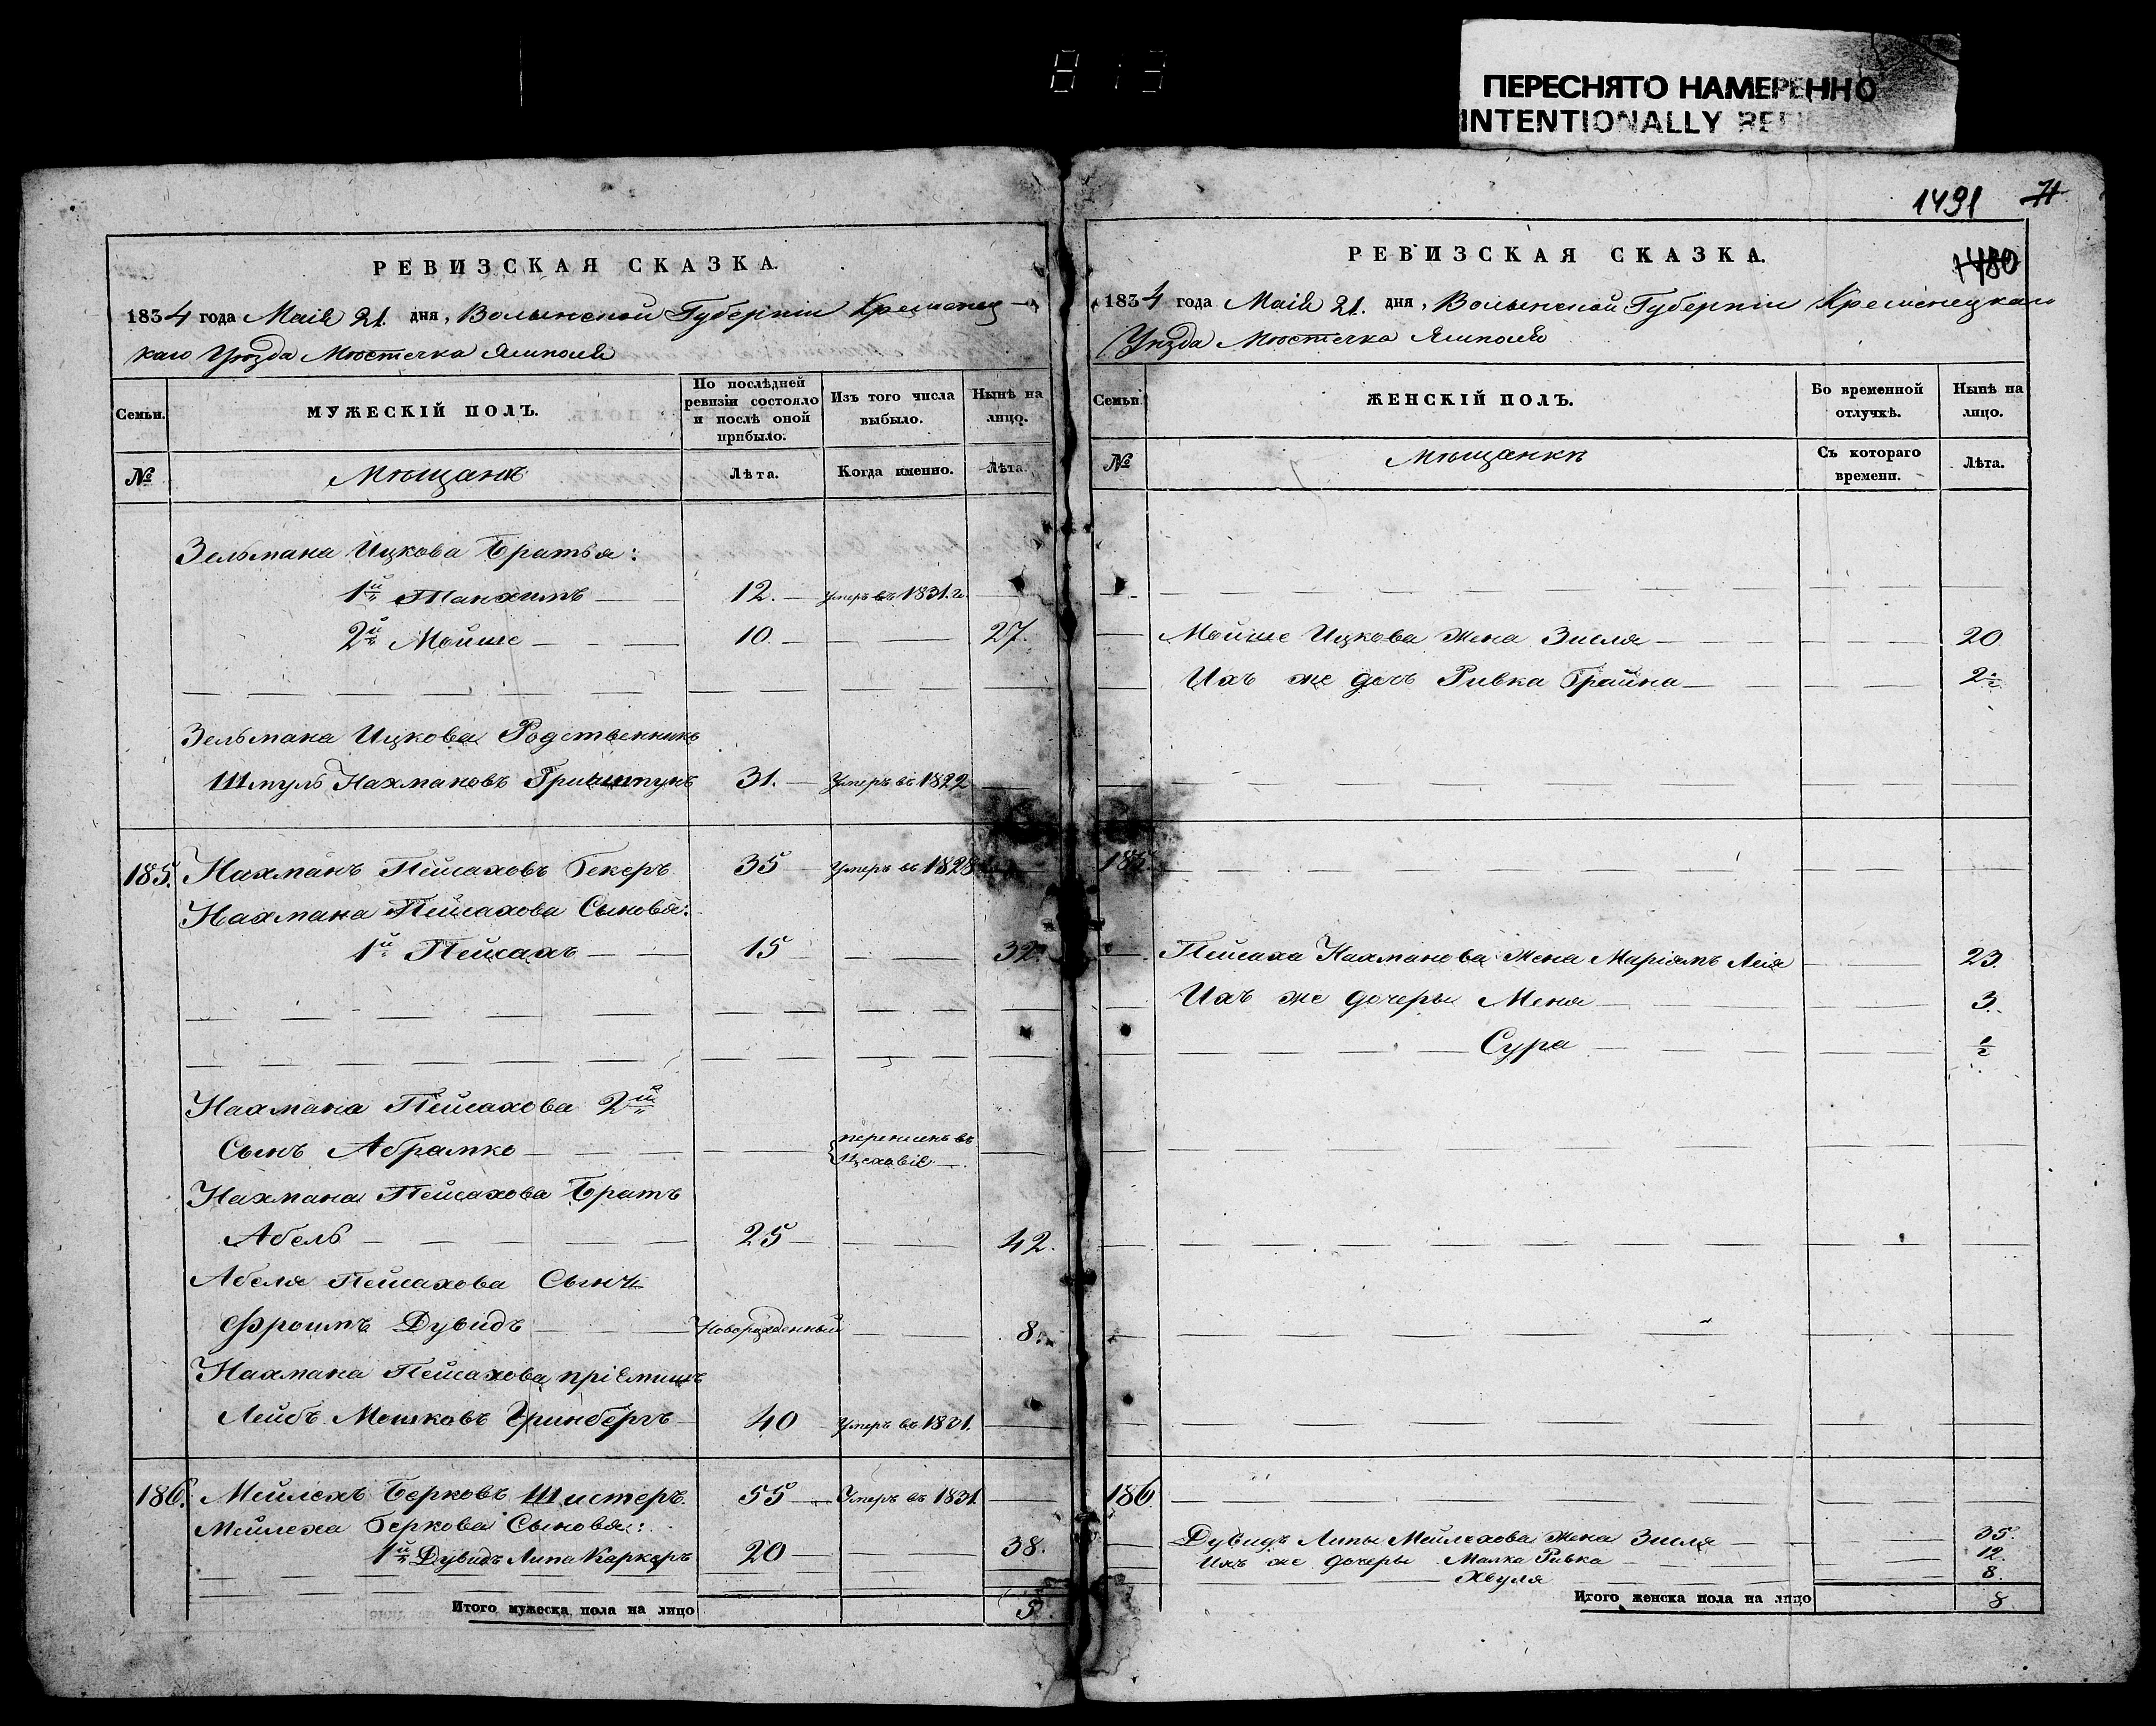 813
ПЕРЕСНЯТО НАМЕРЕННО
INTENTIONALLY
1491
1480
РЕВИЗСКАЯ СКАЗКА.
1834 года Маія 21. дня, Волынской Губерніи Кременец-
каго Уѣзда Мѣстечка Ямполя
Семьи.
МУЖЕСКІЙ ПОЛЪ.
По послѣдней ревизіи состояло и послѣ оной прибыло.
Изъ того числа выбыло.
Нынѣ на лицо.
№
Мѣщанъ
Лѣта.
Когда именно.
Лѣта.
Зельмана Ицкова Братья:
1й Танхимъ 12. Умеръ въ 1831.г.
2й Мойше 10. 27.
Зельмана Ицкова Родственникъ
Шмуль Нахмановъ 31. Умеръ въ 1822
185. Нахманъ Пейсаховъ Бекеръ 35 Умеръ въ 1828
Нахмана Пейсахова Сыновья:
1й Пейсахъ 15 32.
Нахмана Пейсахова 2й
Сынъ Абрамко въ
Цеховіе
Нахмана Пейсахова Братъ
Абель 25 42.
Абеля Пейсахова Сынъ
Фроимъ Дувидъ Новорожденный 8.
Нахмана Пейсахова пріемышъ
Лейбъ Мошковъ Гринбергъ 40 Умеръ въ 1831.
186. Мейлехъ Берковъ Шистеръ 55 Умеръ въ 1831
Мейлеха Беркова Сыновья:
1й Дувидъ Липа Каркеръ 20 38.
Итого мужеска пола на лицо 5.
РЕВИЗСКАЯ СКАЗКА.
1834 года Маія 21. дня, Волынской Губерніи Кременецкаго
Уѣзда Мѣстечка Ямполя
Семьи.
ЖЕНСКІЙ ПОЛЪ.
Во временной отлучкѣ.
Нынѣ на лицо.
№
Мѣщанки
Съ котораго времени.
Лѣта.
Мойше Ицкова жена Зисля 20
Ихъ же дочь Ривка Брайна 2
185.
Пейсаха Нахманова жена Маріямъ Леія 23.
Ихъ же дочеры Меня 3.
Сура ½
186
Дувидъ Липы Мейлехова жена Зисля 35.
Ихъ же дочеры Малка Ривка 12.
Хвуля 8.
Итого женска пола на лицо 8.